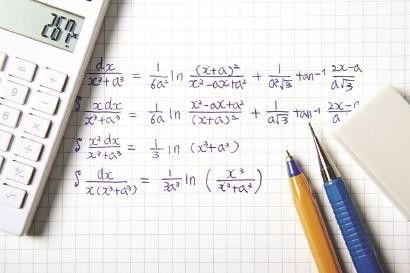 dx/(x³+a³) = 1/(6a²) ln (x+a)²/(x²-ax+a²) + 1/(a²√3) tan⁻¹ (2x-a)/(a√3)
∫ xdx/(x³+a³) = 1/(6a) ln (x²-ax+a²)/(x+a)² + 1/(a√3) tan⁻¹ 2x-/a
∫ x²dx/(x³+a³) = 1/3 ln (x³+a³)
∫ dx/(x(x³+a³)) = 1/(3a³) ln (x³/(x³+a³))